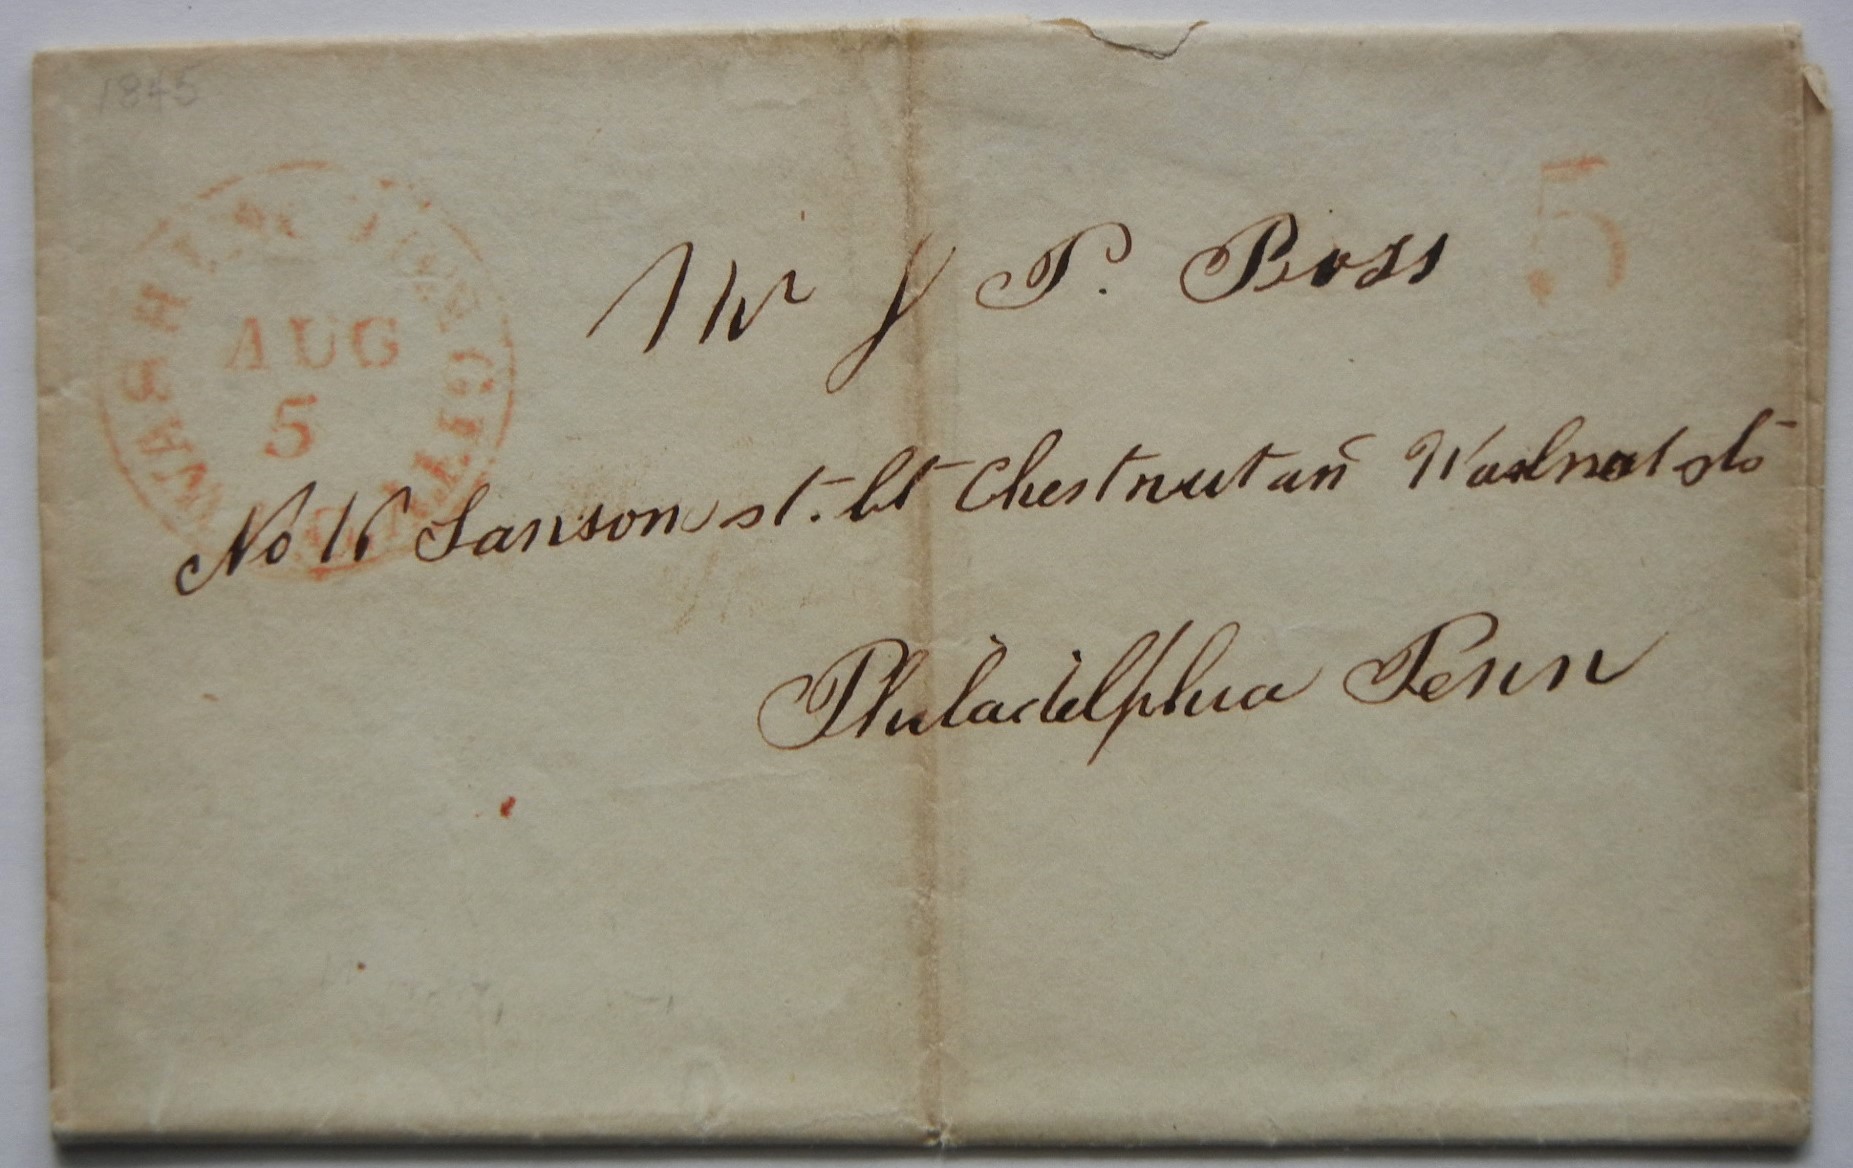 1845
WASHINGTON CITY D.C.
AUG
5
5
Mr J P. Ross
No 16 Sanson st. bt Chestnut an Walnut sts
Philadelphia Penn